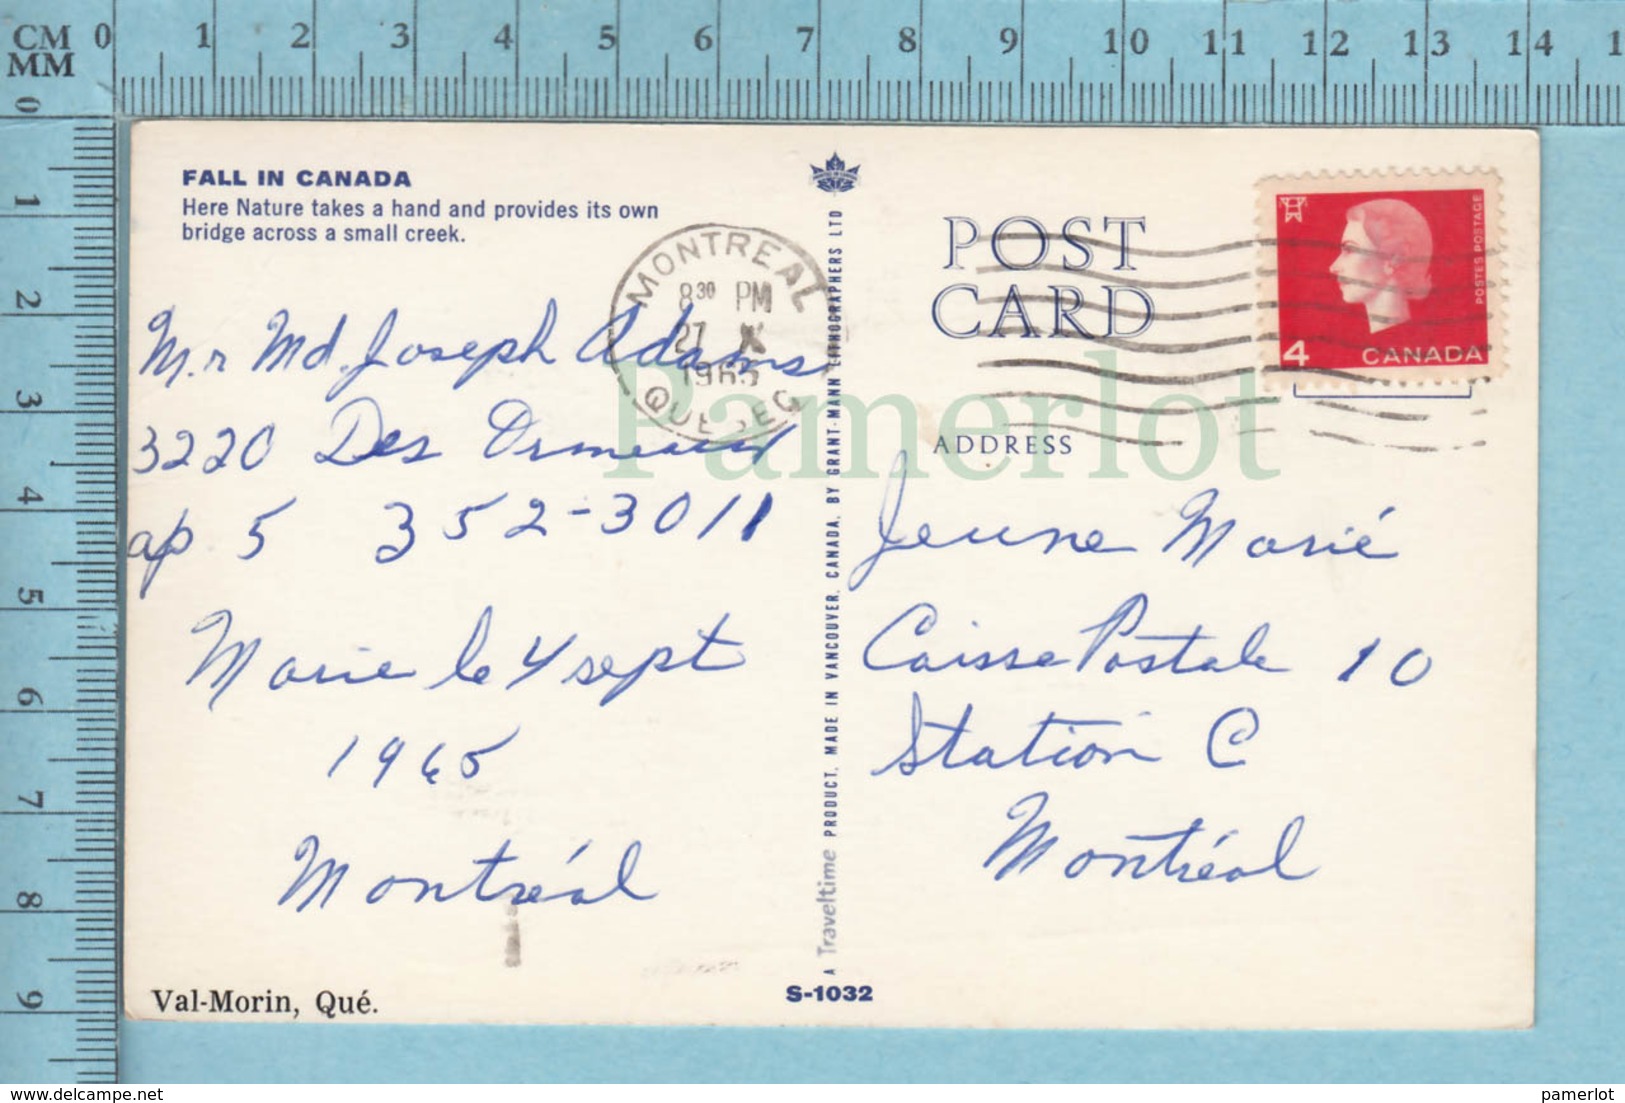 CM 0 1 2 3 4 5 6 7 8 9 10 11 12 13 14 1
MM
0 1 2 3 4 5 6 7 8 9
FALL IN CANADA
Here Nature takes a hand and provides its own
bridge across a small creek.
MONTREAL
8 30 PM
27 X
1965
QUEBEC
POST
CARD
ADDRESS
POSTES POSTAGE
4 CANADA
M. r Md. Joseph Adams
3220 Des Ormeaux
ap 5 352-3011
Marie le 4 sept
1965
Montréal
Jeune Marié
Caisse Postale 10
Station C
Montréal
A Traveltime PRODUCT. MADE IN VANCOUVER, CANADA, BY GRANT-MANN LITHOGRAPHERS LTD
S-1032
Val-Morin, Qué.
Pamerlot
pamerlot